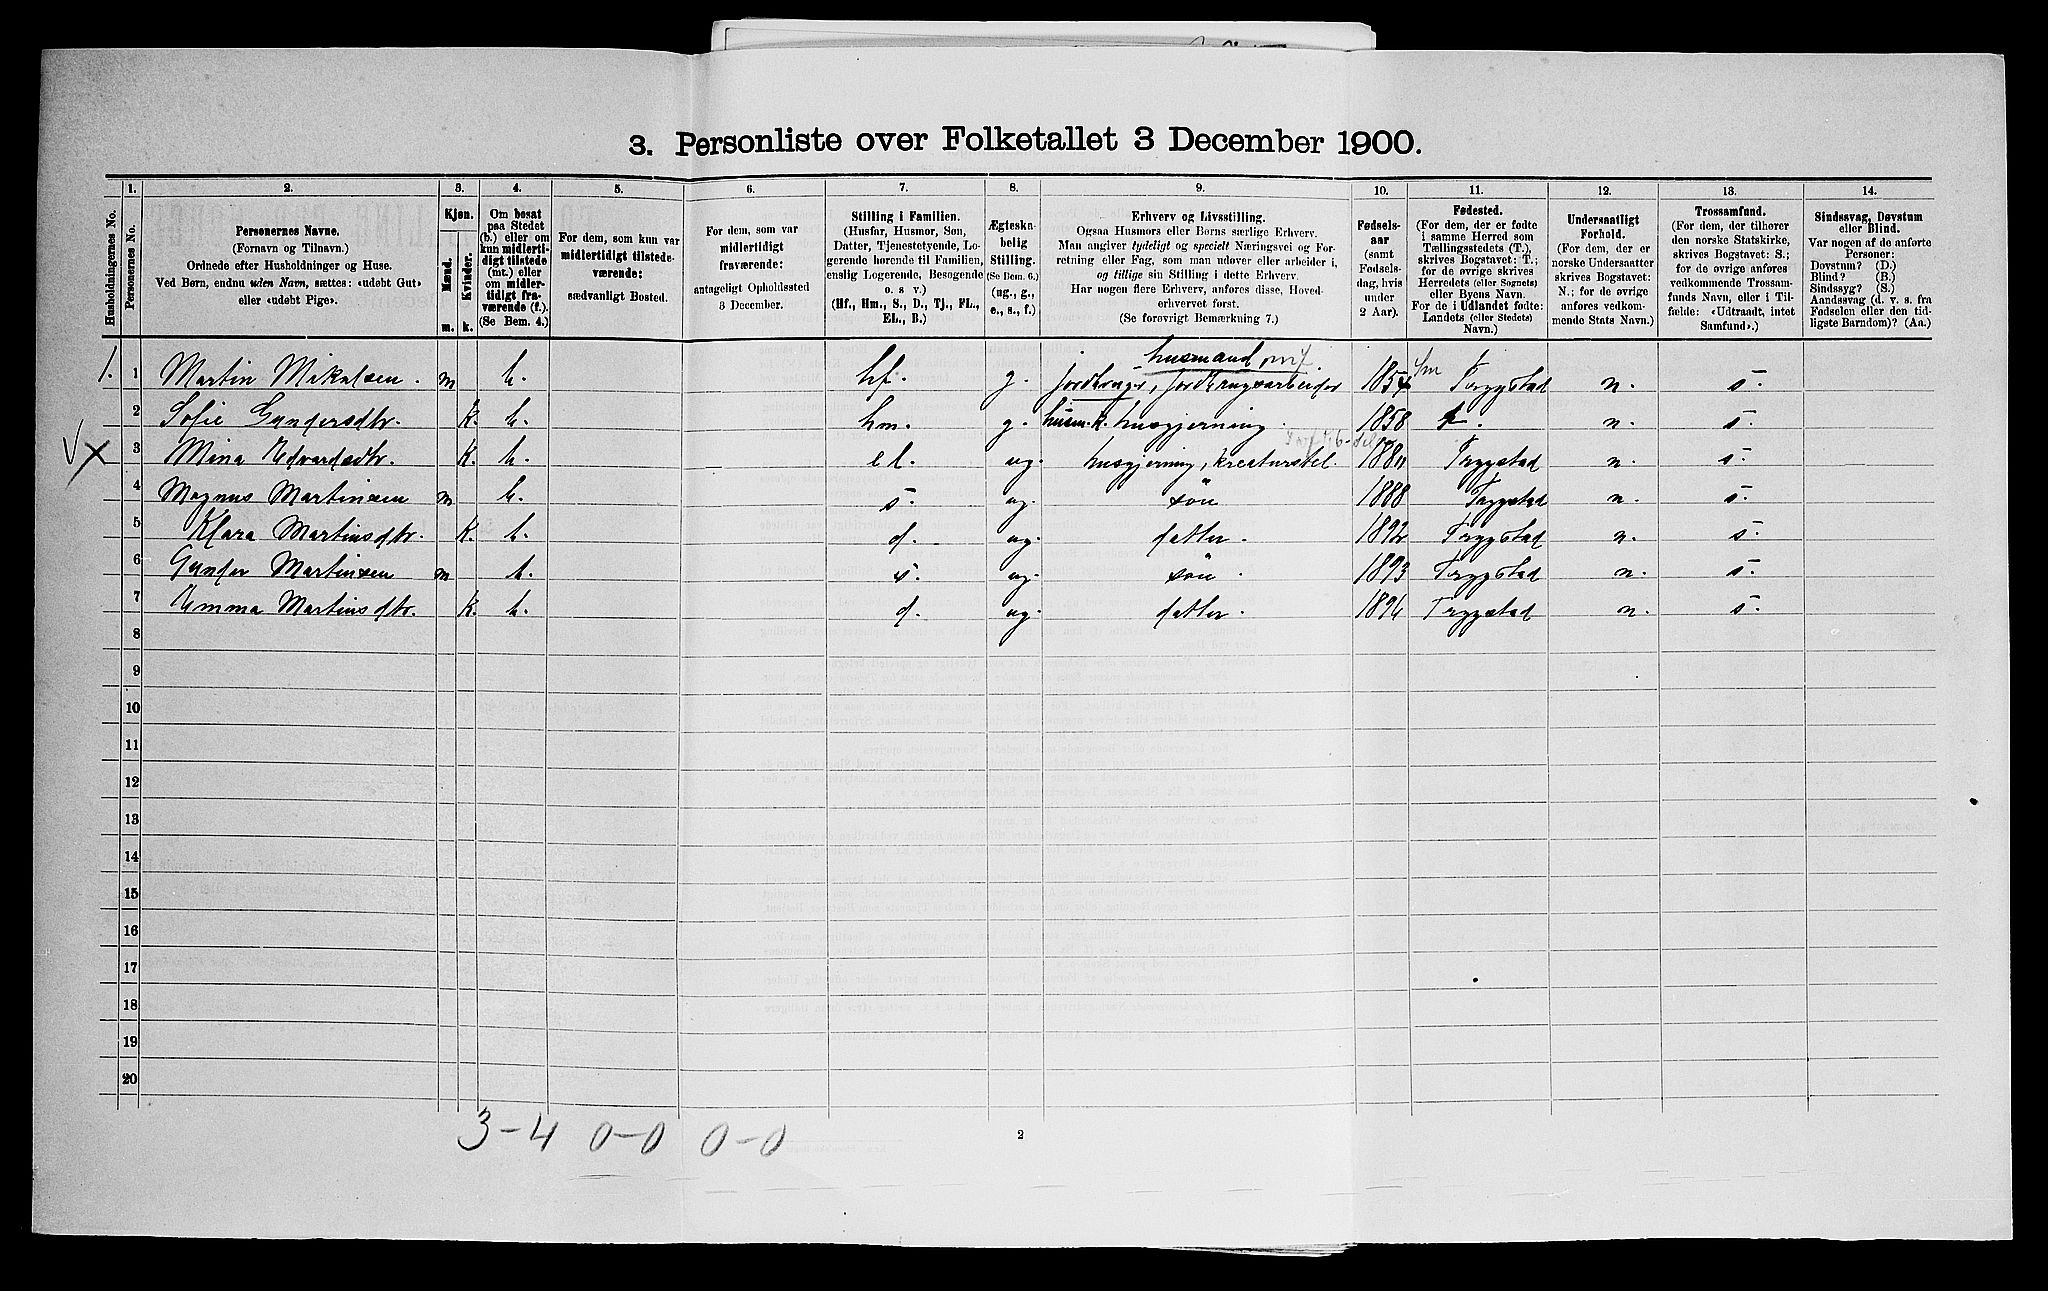 3. Personliste over Folketallet 3 December 1900.
1. 2. 3. 4. 5. 6. 7. 8. 9. 10. 11. 12. 13. 14.
Husholdningernes No.
Personernes No.
Personernes Navne.
(Fornavn og Tilnavn.)
Ordnede efter Husholdninger og Huse.
Ved Børn, endnu uden Navn, sættes: «udøbt Gut»
eller «udøbt Pige».
Kjøn.
Mænd.
Kvinder.
m. k.
Om bosat
paa Stedet
(b.) eller om
kun midlerti-
digt tilstede
(mt.) eller
om midler-
tidigt fra-
værende (f.).
(Se Bem. 4.)
For dem, som kun var
midlertidigt tilstede-
værende:
sædvanligt Bosted.
For dem, som var
midlertidigt
fraværende:
antageligt Opholdssted
3 December.
Stilling i Familien.
(Husfar, Husmor, Søn,
Datter, Tjenestetyende, Lo-
gerende hørende til Familien,
enslig Logerende, Besøgende
o. s. v.)
(Hf., Hm., S., D., Tj., FL.,
EL., B.)
Ægteska-
belig
Stilling.
(Se Bem. 6.)
(ug., g.,
e., s., f.)
Erhverv og Livsstilling.
Ogsaa Husmors eller Børns særlige Erhverv.
Man angiver tydeligt og specielt Næringsvei og For-
retning eller Fag, som man udøver eller arbeider i,
og tillige sin Stilling i dette Erhverv.
Har nogen flere Erhverv, anføres disse, Hoved-
erhvervet først.
(Se forøvrigt Bemærkning 7.)
Fødsels-
aar
(samt
Fødsels-
dag, hvis
under
2 Aar).
Fødested.
(For dem, der er fødte
i samme Herred som
Tællingsstedets (T.),
skrives Bogstavet: T.;
for de øvrige skrives
Herredets (eller Sognets)
eller Byens Navn.
For de i Udlandet fødte:
Landets (eller Stedets)
Navn.)
Undersaatligt
Forhold.
(For dem, der er
norske Undersaatter
skrives Bogstavet:
N.; for de øvrige
anføres vedkom-
mende Stats Navn.)
Trossamfund.
(For dem, der tilhører
den norske Statskirke,
skrives Bogstavet: S.;
for de øvrige anføres
vedkommende Trossam-
funds Navn, eller i Til-
fælde: «Udtraadt, intet
Samfund».)
Sindssvag, Døvstum
eller Blind.
Var nogen af de anførte
Personer:
Døvstum? (D.)
Blind? (B.)
Sindssyg? (S.)
Aandssvag (d. v. s. fra
Fødselen eller den tid-
ligste Barndom)? (Aa.)
husmand
1. 1 Martin Mikalsen. m b. hf. g. jordbruger, jordbrugsarbeider 1854 Trygstad n. s.
2 Sofie Gundersdtr. k. b. hm. g. husm. k. husgjerning. 1858 t. n. s.
3 Mina Edvardsdtr. k. b. el. ug. husgjerning, kreaturstel. Trygstad n. s.
4 Magnus Martinsen m b. s. ug. søn 1888 Trygstad n. s.
5 Klara Martinsdtr. k. b. d. ug. datter. 1892 Trygstad n. s.
6 Gunder Martinsen m b. s. ug. søn. 1893 Trygstad n. s.
7 Emma Martinsdtr. k. b. d. ug. datter. 1896 Trygstad n. s.
8
9
10
11
12
13
14
15
16
17
18
19
20
3-4 0-0 0-0
2